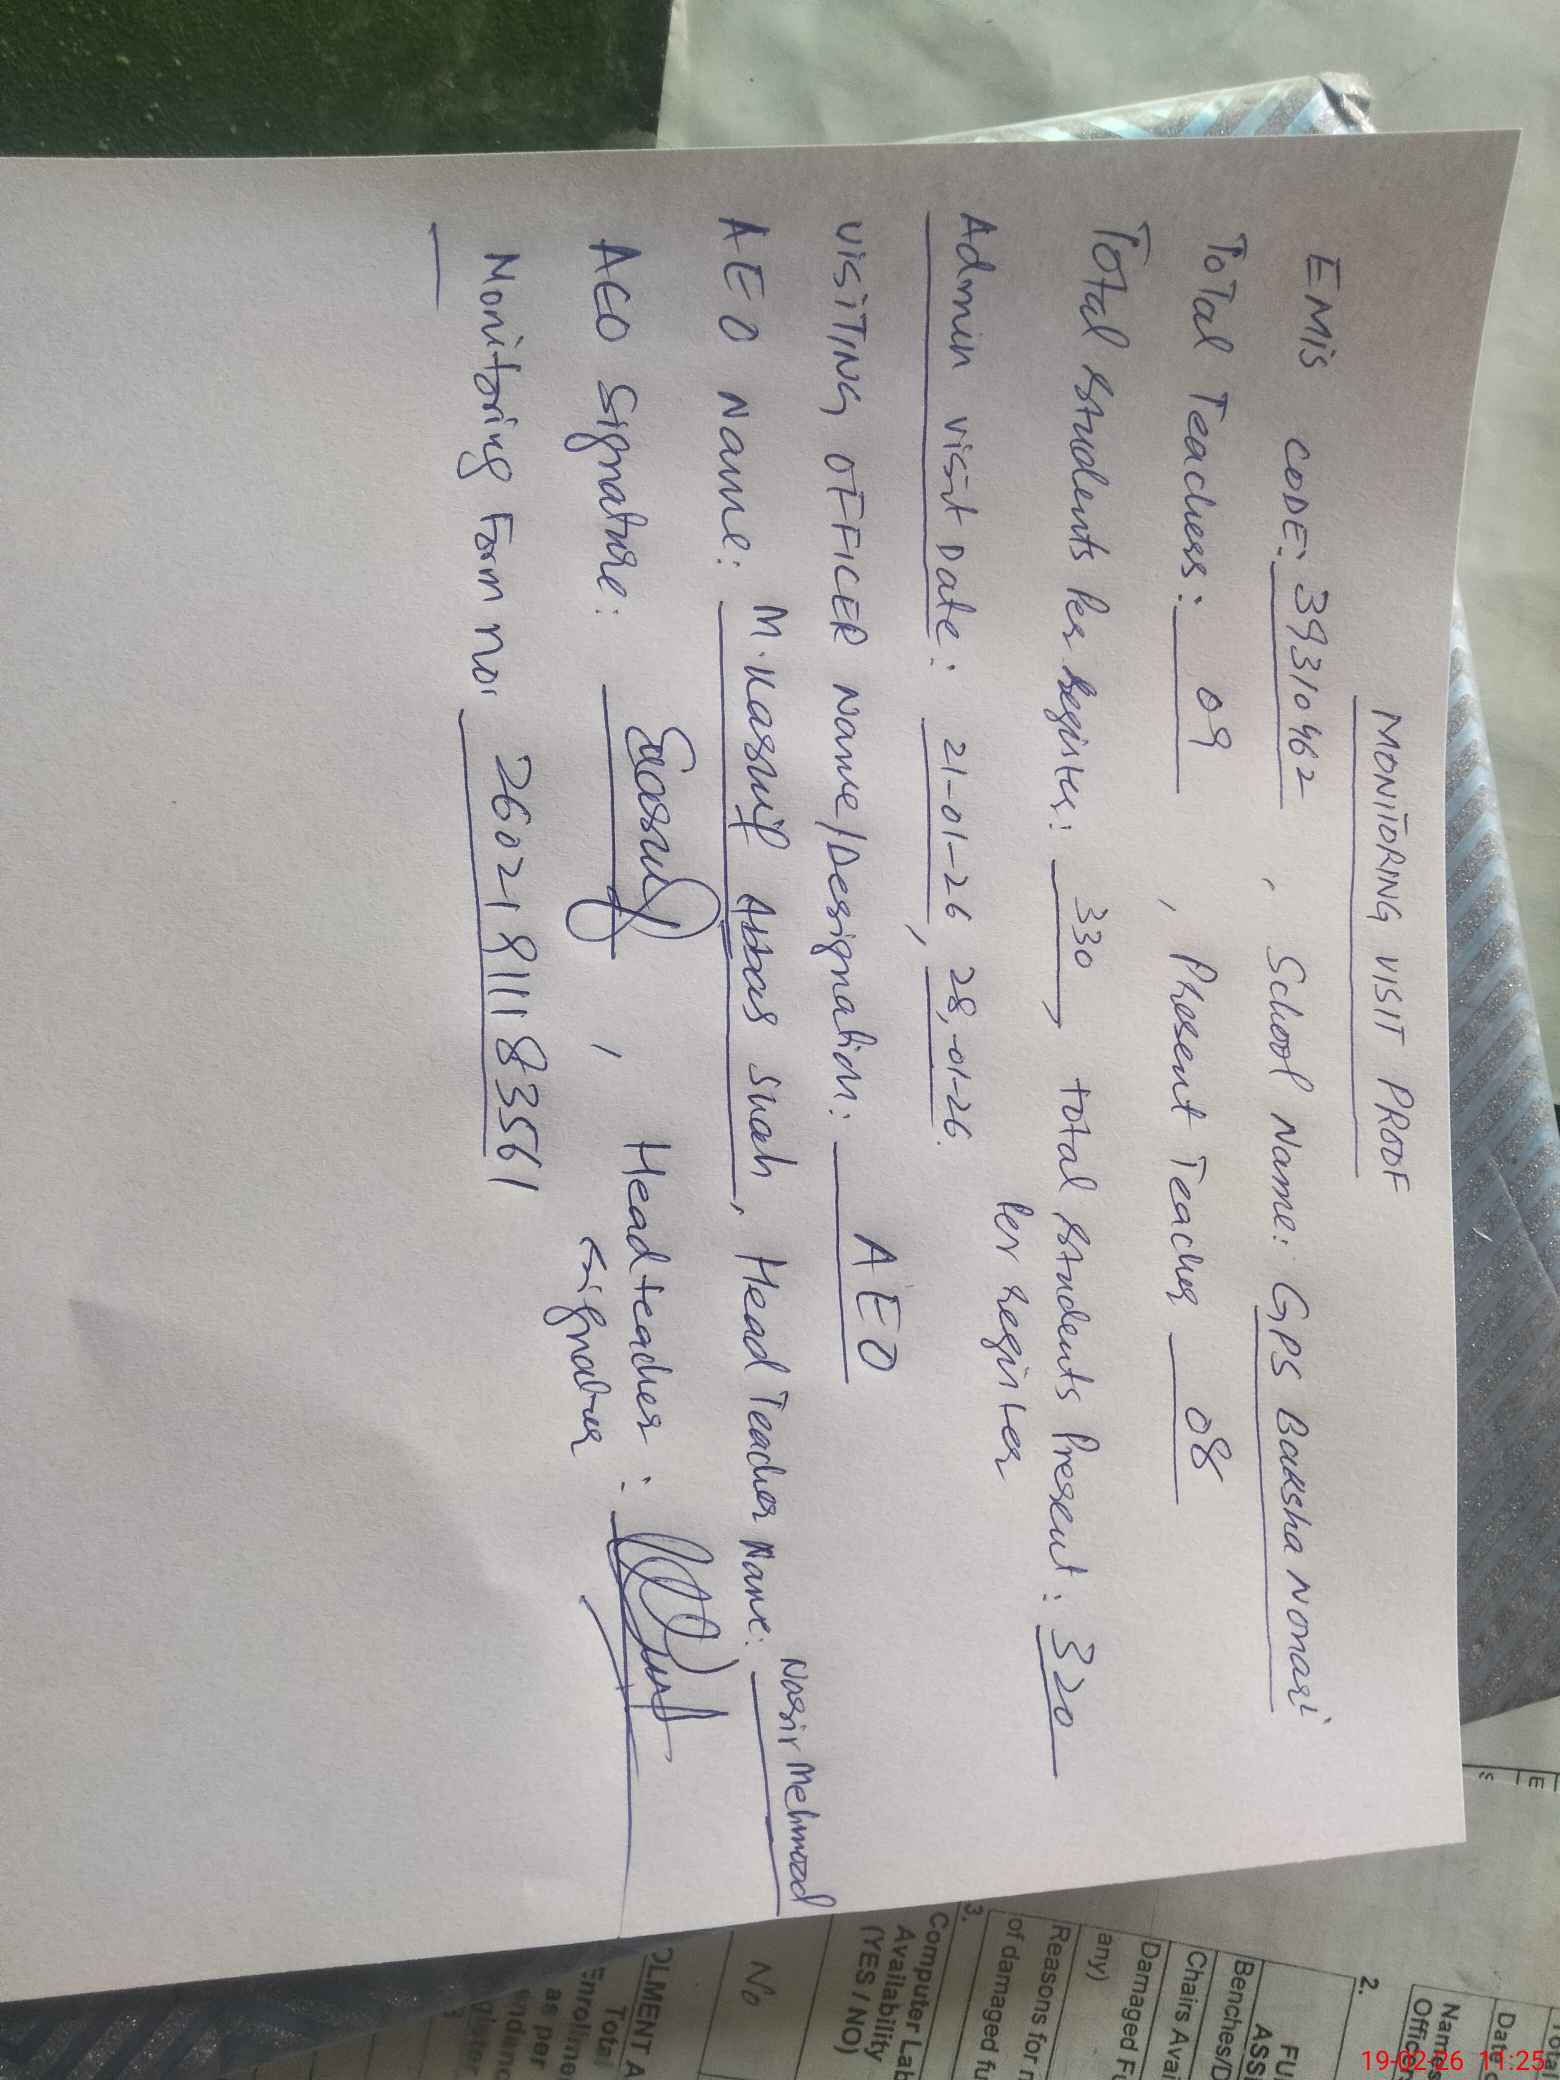 MONITORING VISIT PROOF
EMIS CODE: 39310462 , School Name: GPS Baksha Nonari
Total Teachers: 09 , Present Teacher 08
Total students Per Register: 330, total students Present: 320
Per Register
Admin visit Date: 21-01-26, 28,-01-26.
VISITING OFFICER Name/Designation: AEO
AEO Name: M. Kashif Abbas Shah, Head Teacher Name: Nasir Mehmood
AEO Signature: , Head teacher :
Signature
Monitoring Form no.
2.
FU
ASS
Benches/D
Chairs Avai
Damaged Fu
any)
Reasons for n
of damaged fu
3.
Computer Lab
Availability
(YES / NO)
No
OLMENT A
Total
Enrollme
as per
Date
Name
Office
19-02-26 11:25